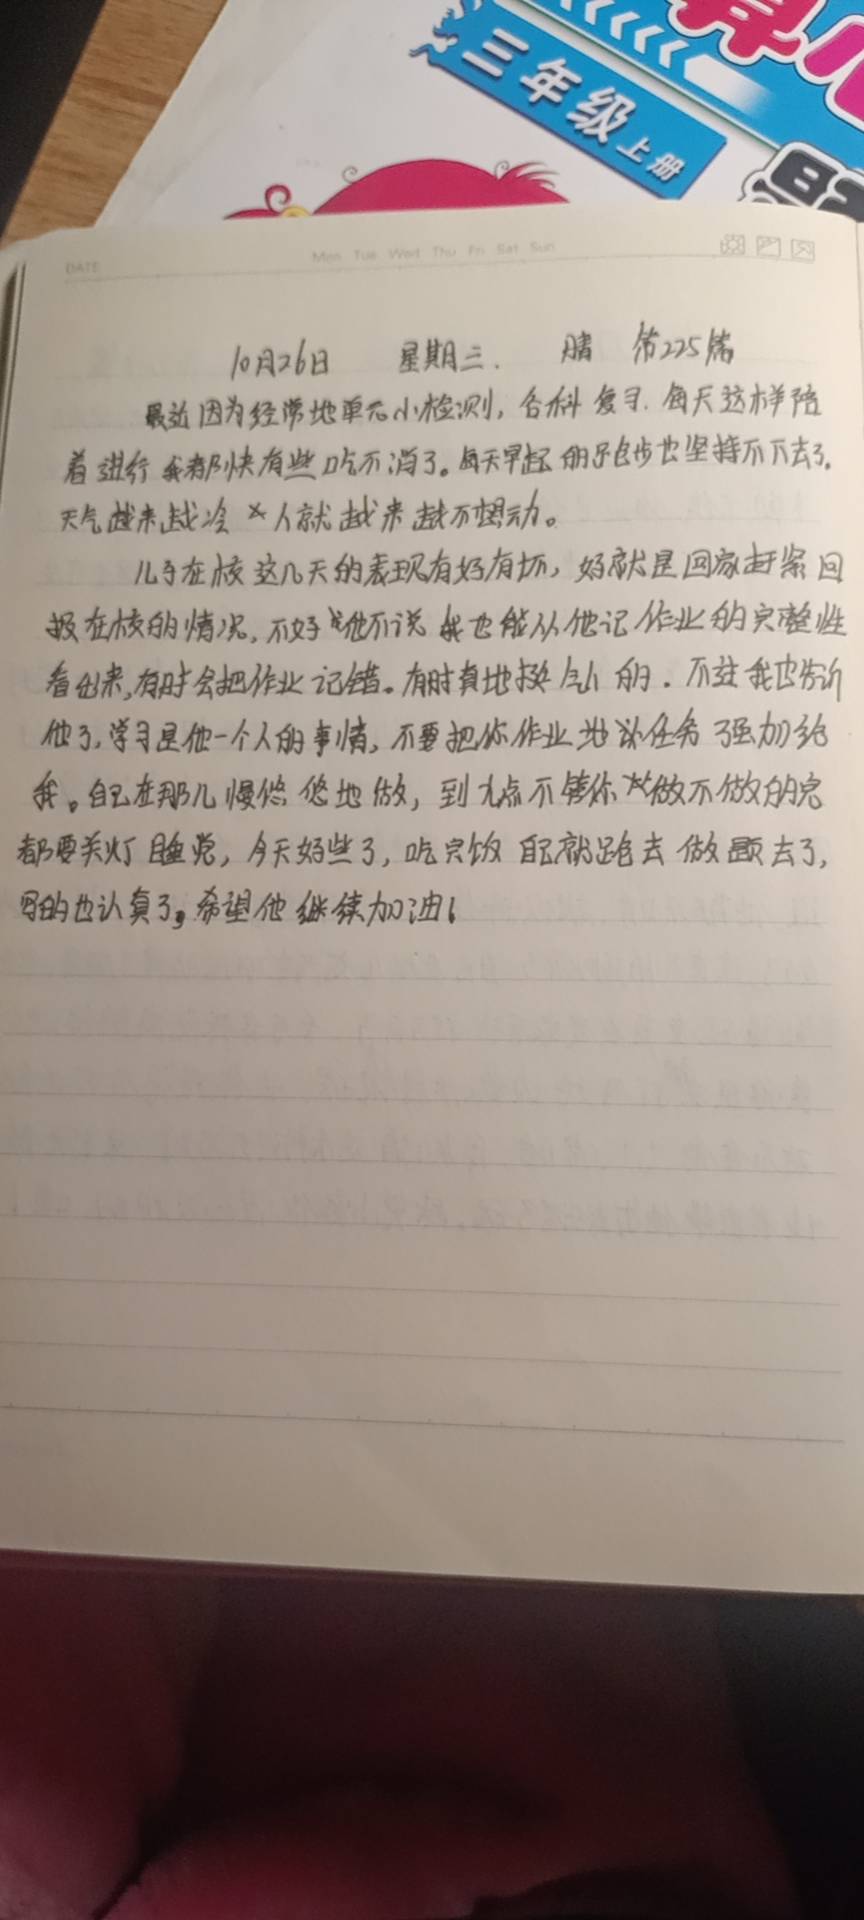 三年级上册
DATE Mon Tue Wed Thu Fri Sat Sun
10月26日 星期三. 晴 第225篇
最近因为经常地单元小检测，各科复习.每天这样陪
着进行我都快有些吃不消了。每天早起的跑步也坚持不下去了.
天气越来越冷 人就越来越不想动。
儿子在校这几天的表现有好有坏，好就是回家赶紧回
报在校的情况,不好他不说我也能从他记作业的完整性
看出来,有时会把作业记错。有时真地挺气人的.不过我也告诉
他了,学习是他一个人的事情,不要把你作业当该任务强加给
我。自己在那儿慢悠悠地做，到九点不管你做不做的完
都要关灯睡觉，今天好些了,吃完饭自己就跑去做题去了,
写的也认真了,希望他继续加油!